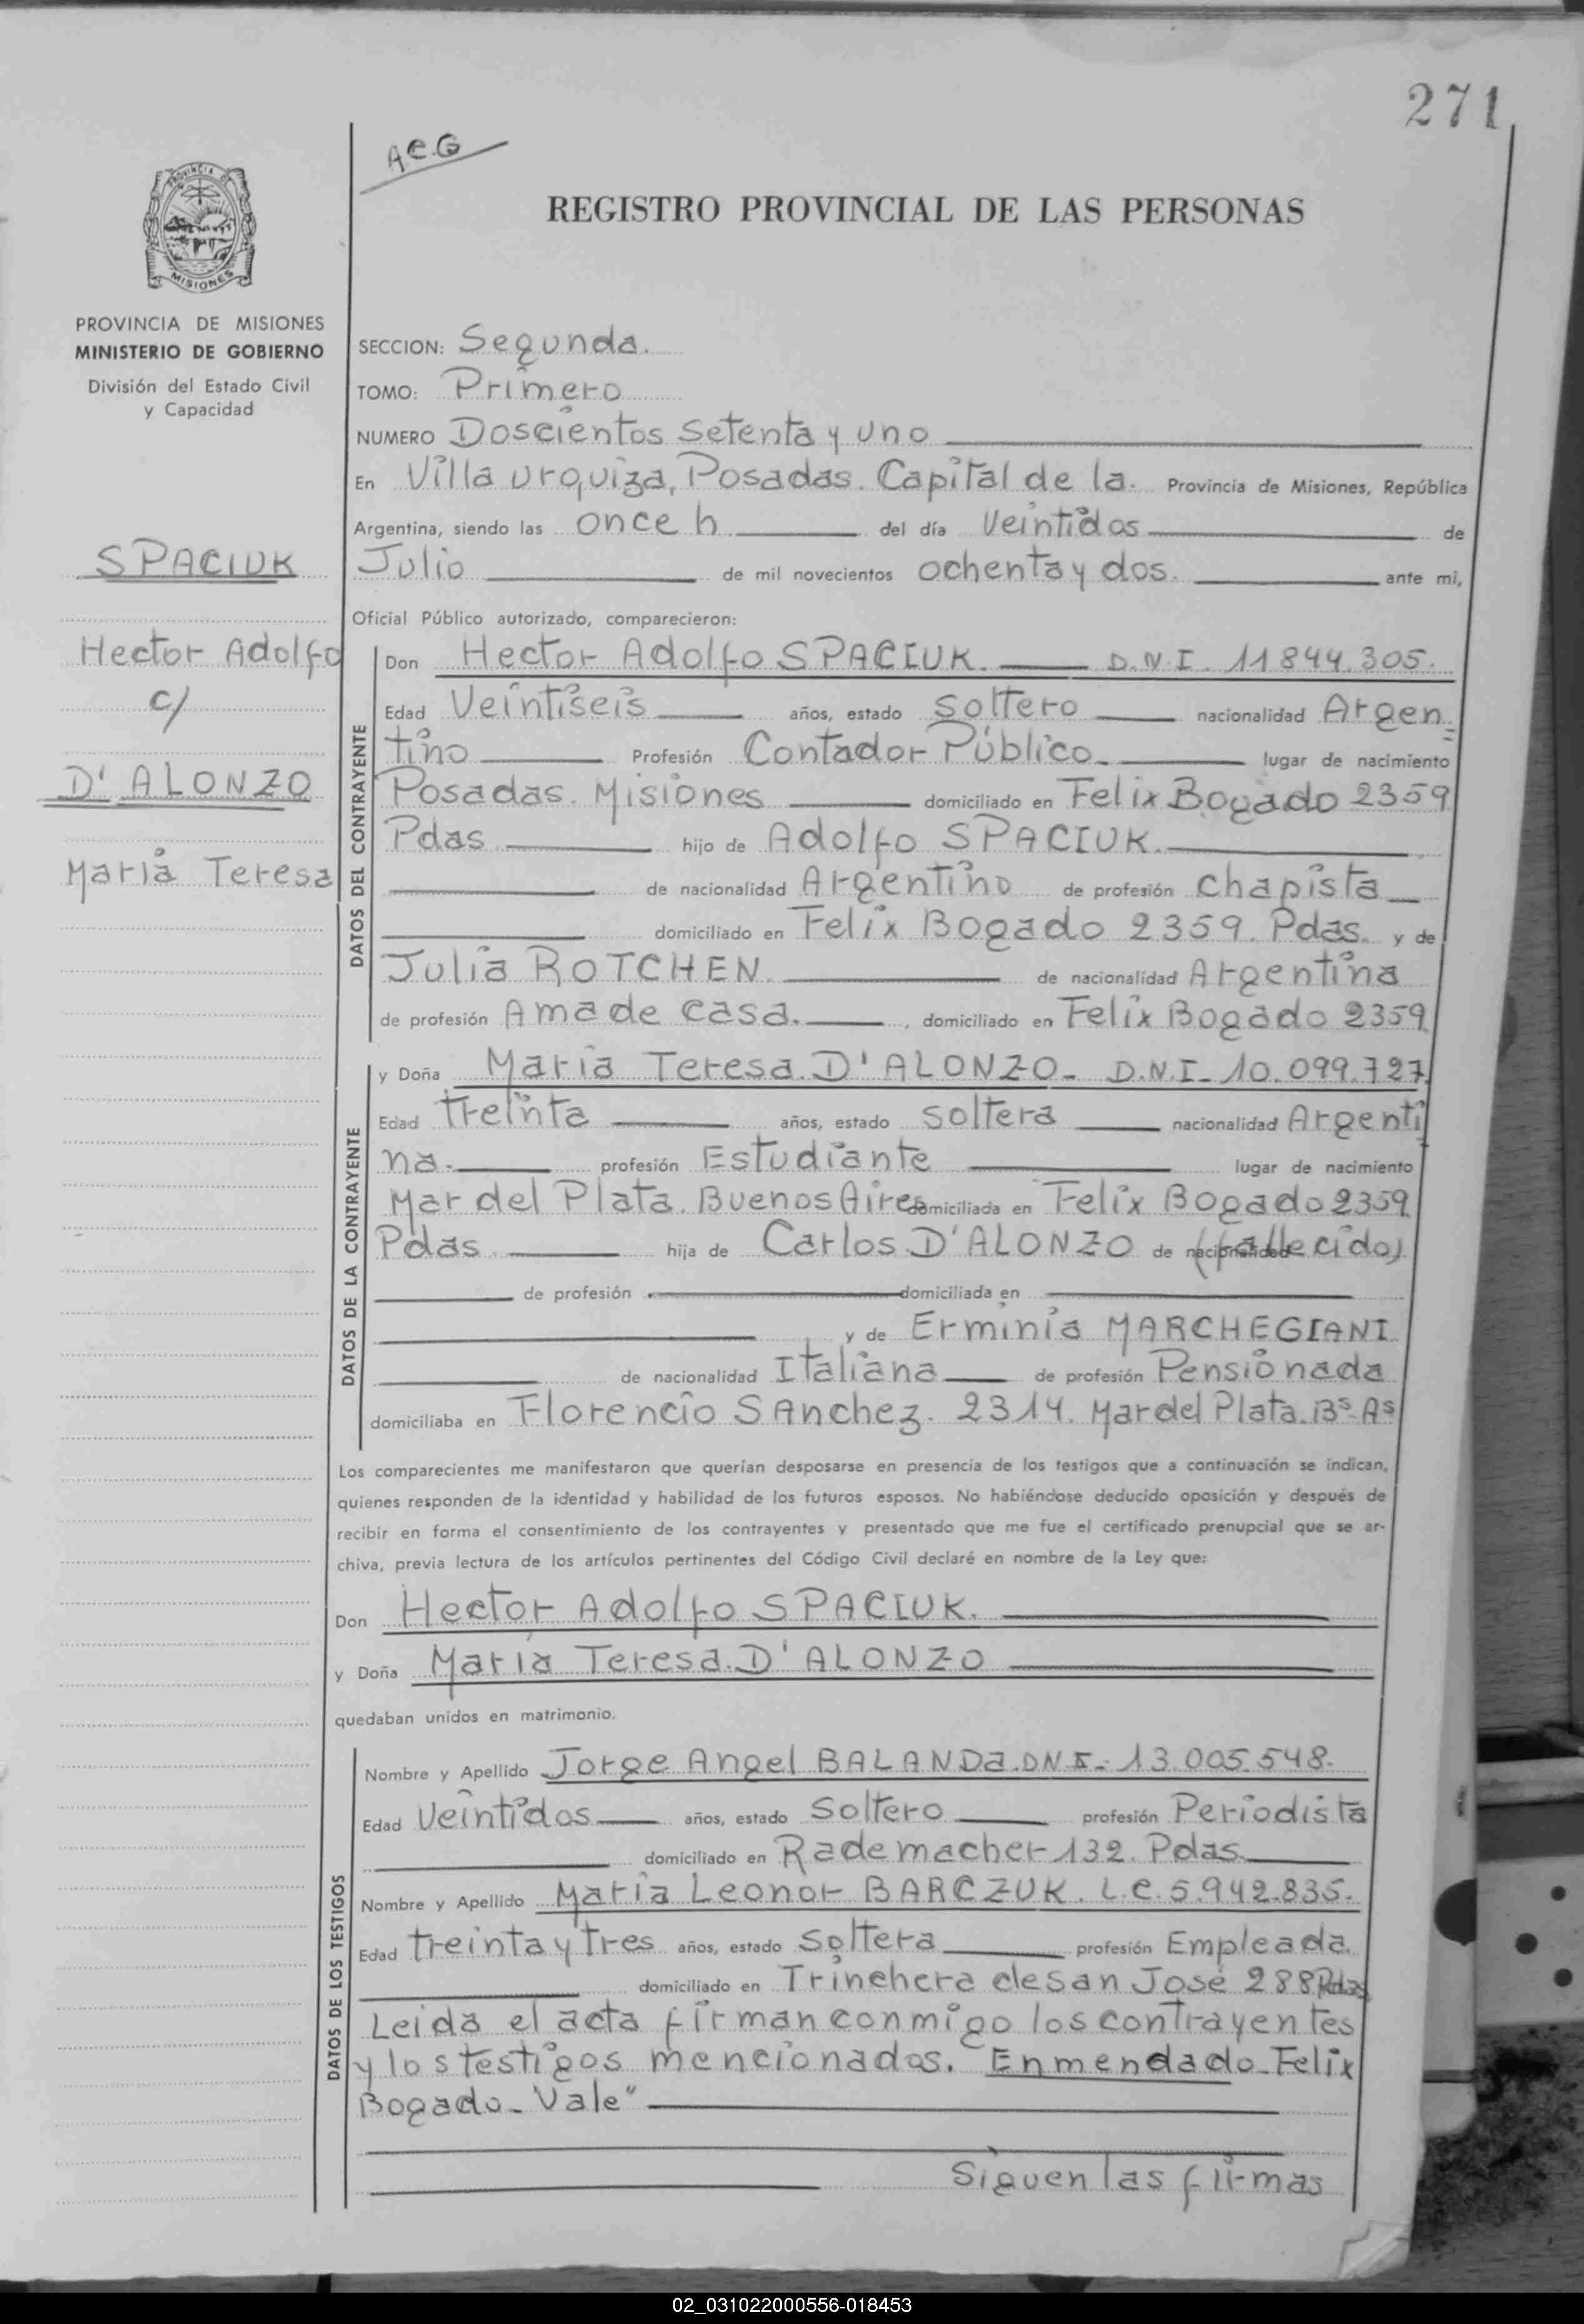 271
A.C.G
REGISTRO PROVINCIAL DE LAS PERSONAS
PROVINCIA DE
MISIONES
PROVINCIA DE MISIONES
MINISTERIO DE GOBIERNO
División del Estado Civil
y Capacidad
SPACIUK
Hector Adolfo
c/
D'ALONZO
María Teresa
SECCION: Segunda.
TOMO: Primero
NUMERO Doscientos Setenta y uno
En Villa Urquiza, Posadas. Capital de la. Provincia de Misiones, República
Argentina, siendo las once h del día Veintidos de
Julio de mil novecientos ochenta y dos. ante mi,
Oficial Público autorizado, comparecieron:
DATOS DEL CONTRAYENTE
Don Hector Adolfo SPACIUK. D.N.I. 11844.305.
Edad Veintiseis años, estado soltero nacionalidad Argen
tino Profesión Contador Público. lugar de nacimiento
Posadas. Misiones domiciliado en Felix Bogado 2359
Pdas hijo de Adolfo SPACIUK.
de nacionalidad Argentino de profesión chapista
domiciliado en Felix Bogado 2359. Pdas. y de
Julia ROTCHEN. de nacionalidad Argentina
de profesión Ama de casa. domiciliado en Felix Bogado 2359
DATOS DE LA CONTRAYENTE
y Doña María Teresa. D'ALONZO- D.N.I- 10.099.727.
Edad treinta años, estado soltera nacionalidad Argenti
na. profesión Estudiante lugar de nacimiento
Mar del Plata. Buenos Aires domiciliada en Felix Bogado 2359
Pdas hija de Carlos. D'ALONZO de nacionalidad (fallecido)
de profesión domiciliada en
y de Erminia MARCHEGIANI
de nacionalidad Italiana de profesión Pensionada
domiciliaba en Florencio SAnchez. 2314. Mar del Plata. Bs-As
Los comparecientes me manifestaron que querían desposarse en presencia de los testigos que a continuación se indican,
quienes responden de la identidad y habilidad de los futuros esposos. No habiéndose deducido oposición y después de
recibir en forma el consentimiento de los contrayentes y presentado que me fue el certificado prenupcial que se ar-
chiva, previa lectura de los artículos pertinentes del Código Civil declaré en nombre de la Ley que:
Don Hector Adolfo SPACIUK.
y Doña María Teresa. D'ALONZO
quedaban unidos en matrimonio.
DATOS DE LOS TESTIGOS
Nombre y Apellido Jorge Angel BALANDa. DNI- 13.005.548.
Edad Veintidos años, estado Soltero profesión Periodista
domiciliado en Rademacher 132. Pdas.
Nombre y Apellido María Leonor BARCZUK. L.C. 5.942.835.
Edad treinta y tres años, estado Soltera profesión Empleada.
domiciliado en Trinchera de San José 288 Pdas
Leida el acta firman conmigo los contrayentes
y los testigos mencionados. "Enmendado-Felix
Bogado- Vale"
Siguen las firmas
02_031022000556-018453